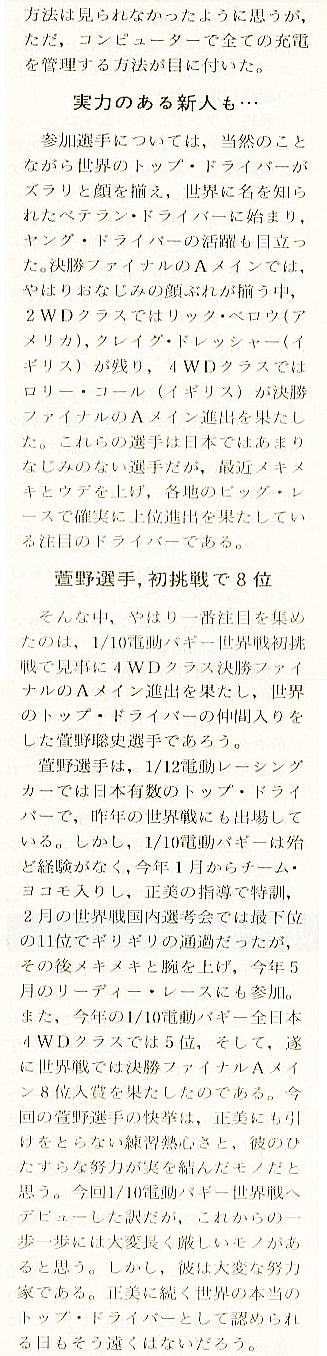 方法は見られなかったように思うが，
ただ，コンピューターで全ての充電
を管理する方法が目に付いた。
実力のある新人も…
参加選手については，当然のこと
ながら世界のトップ・ドライバーが
ズラリと顔を揃え，世界に名を知ら
れたベテラン・ドライバーに始まり，
ヤング・ドライバーの活躍も目立っ
た。決勝ファイナルのAメインでは，
やはりおなじみの顔ぶれが揃う中，
2WDクラスではリック・ベロウ(ア
メリカ)，クレイグ・ドレッシャー(イ
ギリス）が残り，4WDクラスでは
ロリー・コール（イギリス）が決勝
ファイナルのAメイン進出を果たし
た。これらの選手は日本ではあまり
なじみのない選手だが，最近メキメ
キとウデを上げ，各地のビッグ・レ
ースで確実に上位進出を果たしてい
る注目のドライバーである。
萱野選手，初挑戦で8位
そんな中，やはり一番注目を集め
たのは，1/10電動バギー世界戦初挑
戦で見事に4WDクラス決勝ファイ
ナルのAメイン進出を果たし，世界
のトップ・ドライバーの仲間入りを
した萱野聡史選手であろう。
萱野選手は，1/12電動レーシング
カーでは日本有数のトップ・ドライ
バーで，昨年の世界戦にも出場して
いる。しかし，1/10電動バギーは殆
ど経験がなく，今年1月からチーム・
ヨコモ入りし，正美の指導で特訓，
2月の世界戦国内選考会では最下位
の11位でギリギリの通過だったが，
その後メキメキと腕を上げ，今年5
月のリーディー・レースにも参加。
また，今年の1/10電動バギー全日本
4WDクラスでは5位，そして，遂
に世界戦では決勝ファイナルAメイ
ン8位入賞を果たしたのである。今
回の萱野選手の快挙は，正美にも引
けをとらない練習熱心さと，彼のひ
たすらな努力が実を結んだモノだと
思う。今回1/10電動バギー世界戦へ
デビューした訳だが，これからの一
歩一歩には大変長く厳しいモノがあ
ると思う。しかし，彼は大変な努力
家である。正美に続く世界の本当の
トップ・ドライバーとして認められ
る日もそう遠くはないだろう。